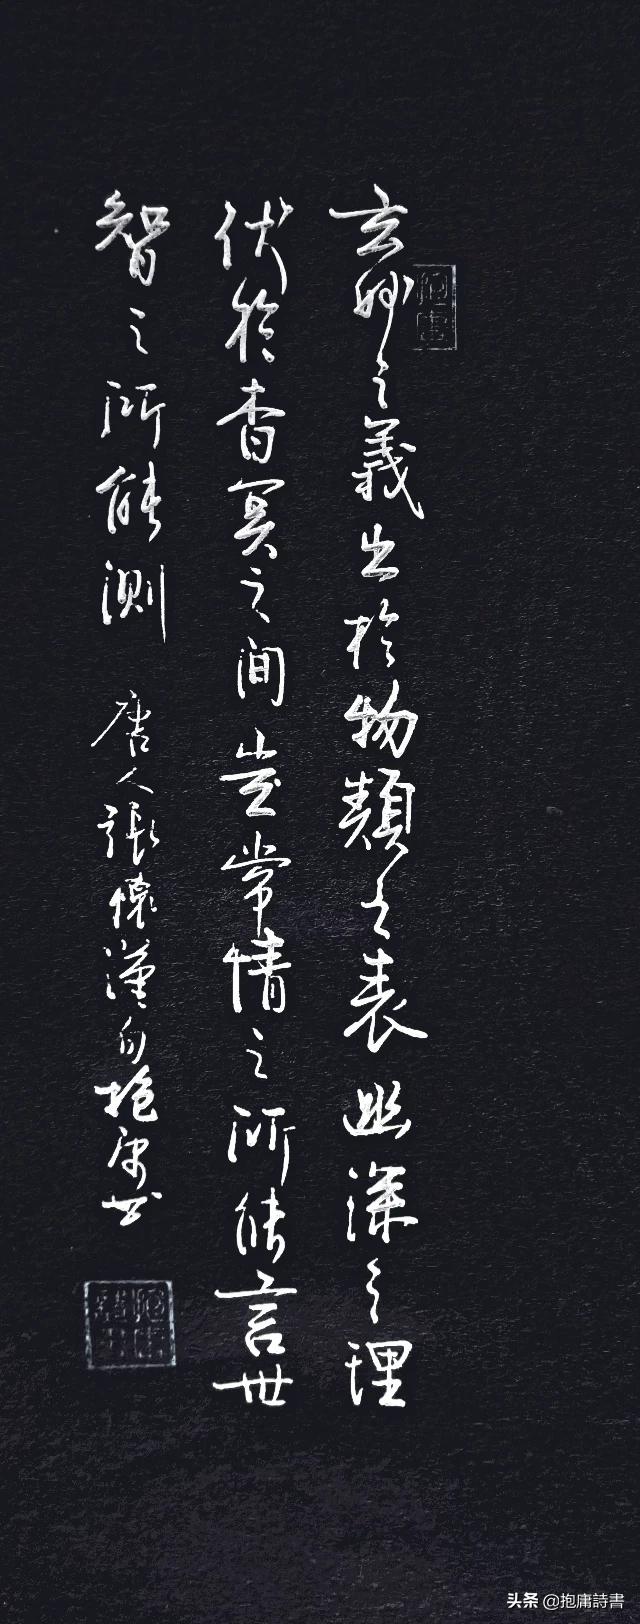 玄妙之義出於物類之表幽深之理
伏於杳冥之間豈常情之所能言世
智之所能測
唐人張懷瓘句抱庸書
头条 @抱庸詩書